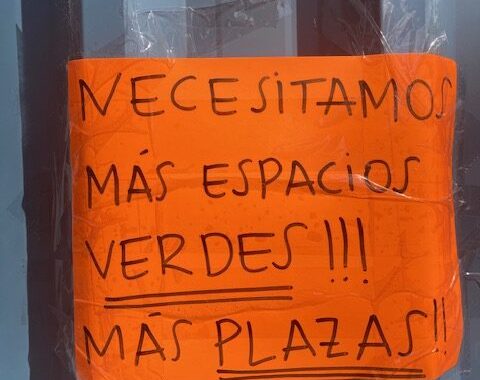 NECESITAMOS
MÁS ESPACIOS
VERDES!!!
MÁS PLAZAS!!